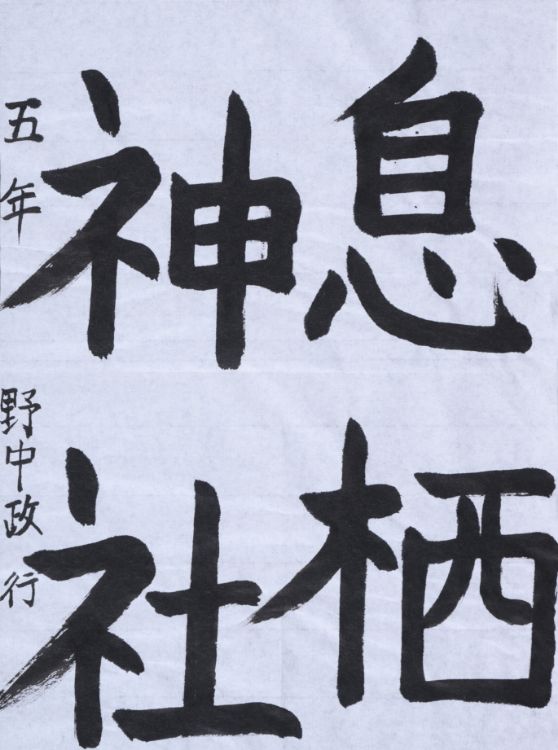 息栖
神社
五年 野中政行